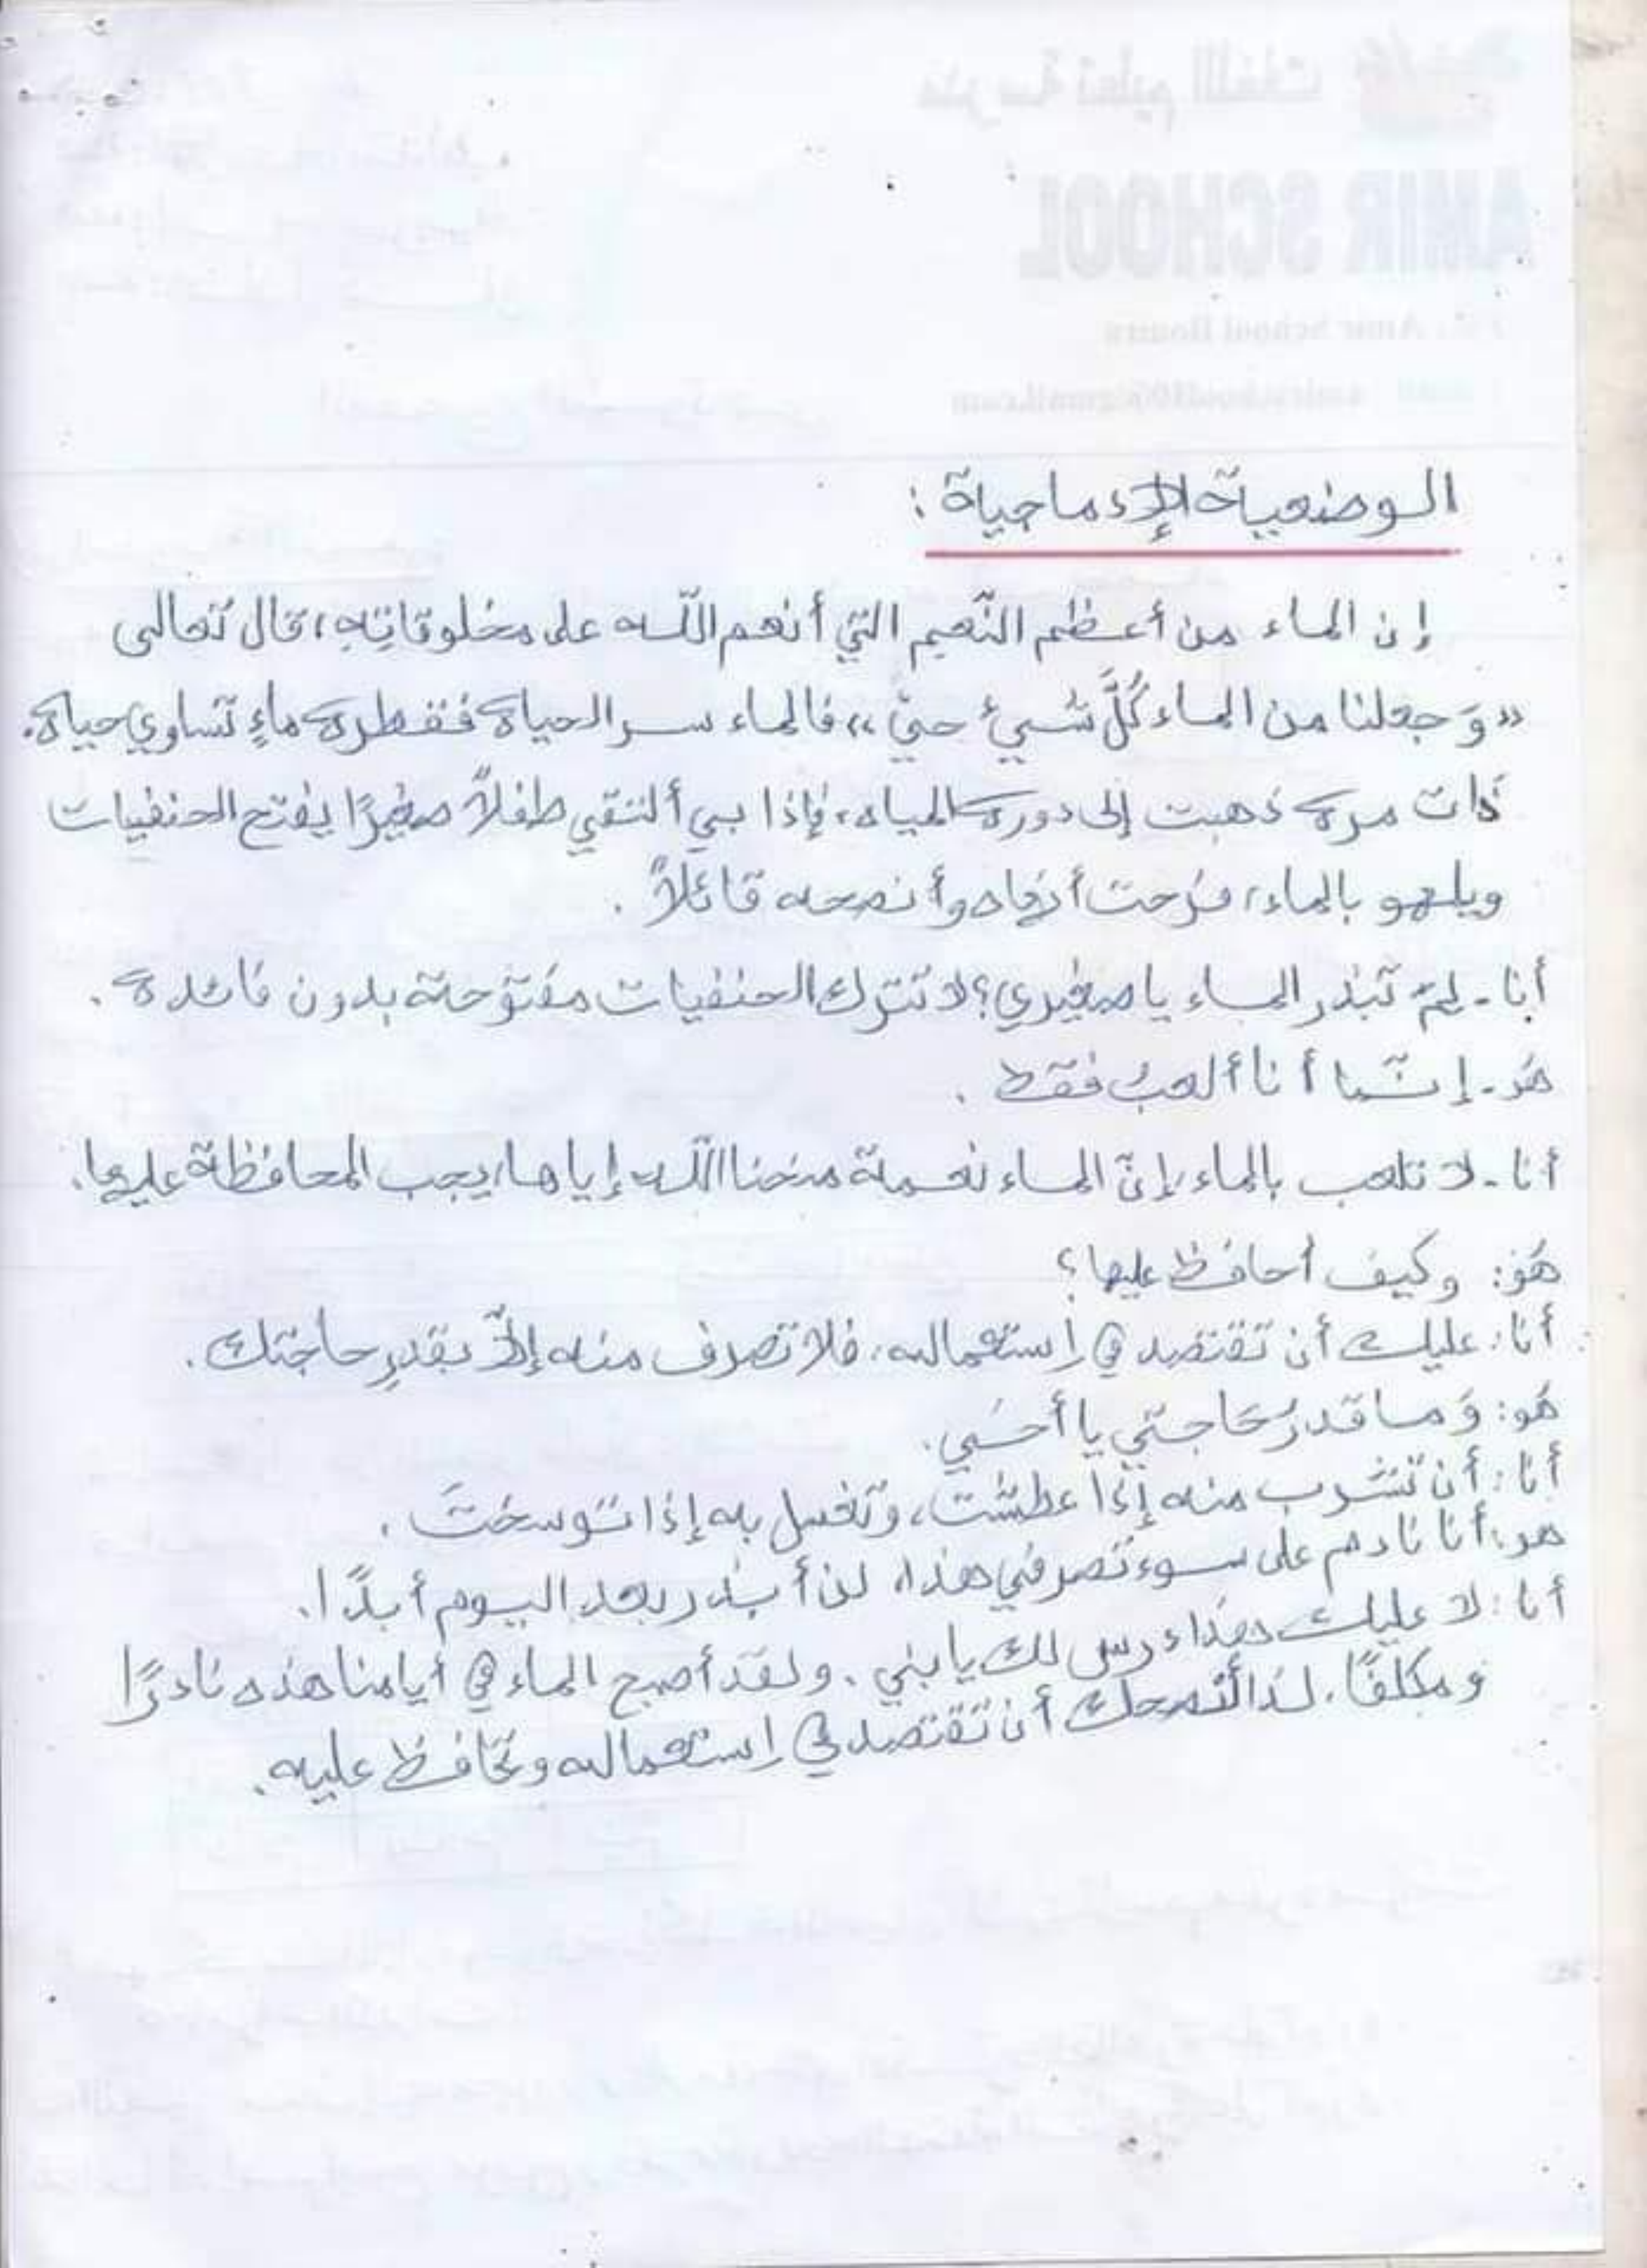 الوضعية الإدماجية :
إن الماء من أعظم النّعيم التي أنعم اللّه على مخلوقاتِهِ، قال تعالى
«وَ جعلنا من الماء كُلَّ شيئ حيّ»، فالماء سر الحياة فقطرة ماءٍ تساوي حياة.
ذات مرة ذهبت إلى دورة المياه، فإذا بي ألتقي طفلاً صغيرًا يفتح الحنفيات
ويلهو بالماء، فرحت أنهاه وأنصحه قائلاً .
أنا - لِمَ تبذر الماء يا صغيري؟ لا تترك الحنفيات مفتوحة بدون فائدة .
هو - إنّما أنا ألعبُ فقط .
أنا - لا تلعب بالماء، إنّ الماء نعمة منحنا اللّه إياها، يجب المحافظة عليها.
هُوَ: وكيف أحافظ عليها؟
أنا: عليك أن تقتصد في إستعماله، فلا تصرف منه إلاّ بقدرِ حاجتك .
هُو: وَ ما قدرُ حَاجتي يا أخي.
أنا: أن تشرب منه إذا عطشت، وتغسل به إذا توسختَ .
هو: أنا نادم على سوء تصرفي هذا، لن أبذر بعد اليوم أبدًا.
أنا: لا عليك هذا درس لك يا بني. ولقد أصبح الماء في أيامنا هذه نادرًا
و مكلفًا، لذا أنصحك أن تقتصد في إستعماله وتحافظ عليه.